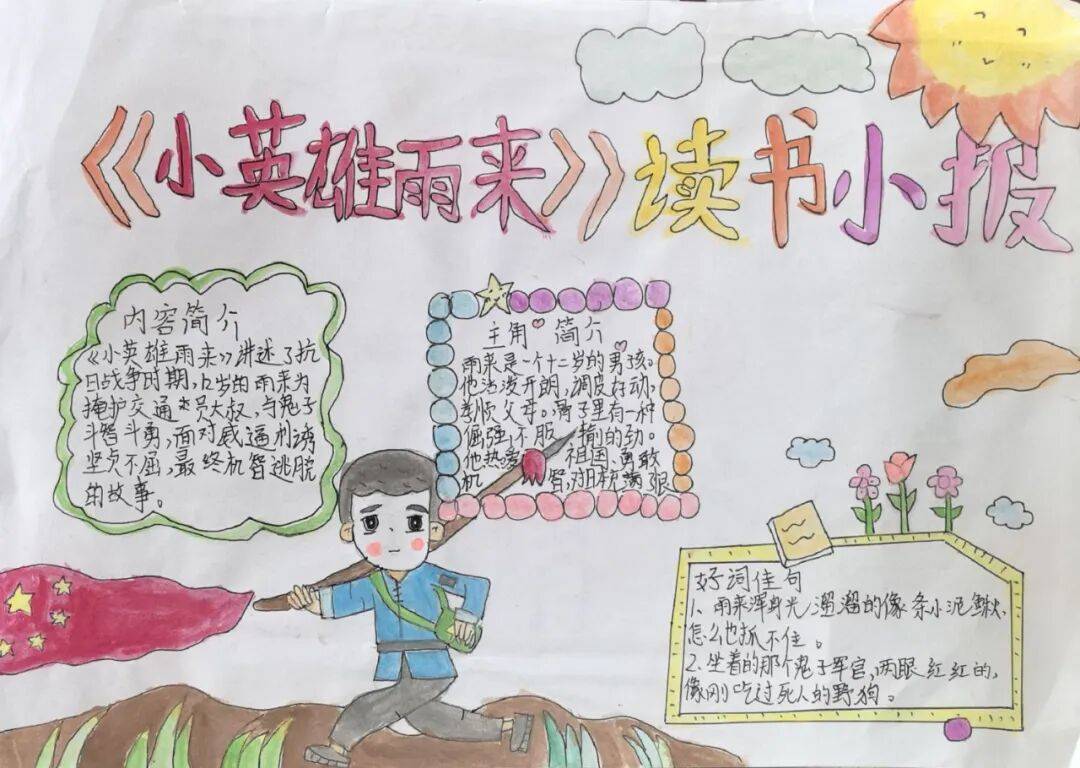 《小英雄雨来》读书小报
内容简介
《小英雄雨来》讲述了抗
日战争时期,12岁的雨来为
掩护交通员大叔,与鬼子
斗智斗勇,面对威逼利诱
坚贞不屈,最终机智逃脱
的故事。
主角简介
雨来是一个十二岁的男孩。
他活泼开朗,调皮好动,
孝顺父母。骨子里有一种
倔强,不服输的劲。
他热爱祖国,勇敢
机智,对日本充满恨
好词佳句
1、雨来浑身光溜溜的像条小泥鳅,
怎么也抓不住。
2.坐着的那个鬼子军官,两眼红红的,
像刚吃过死人的野狗。